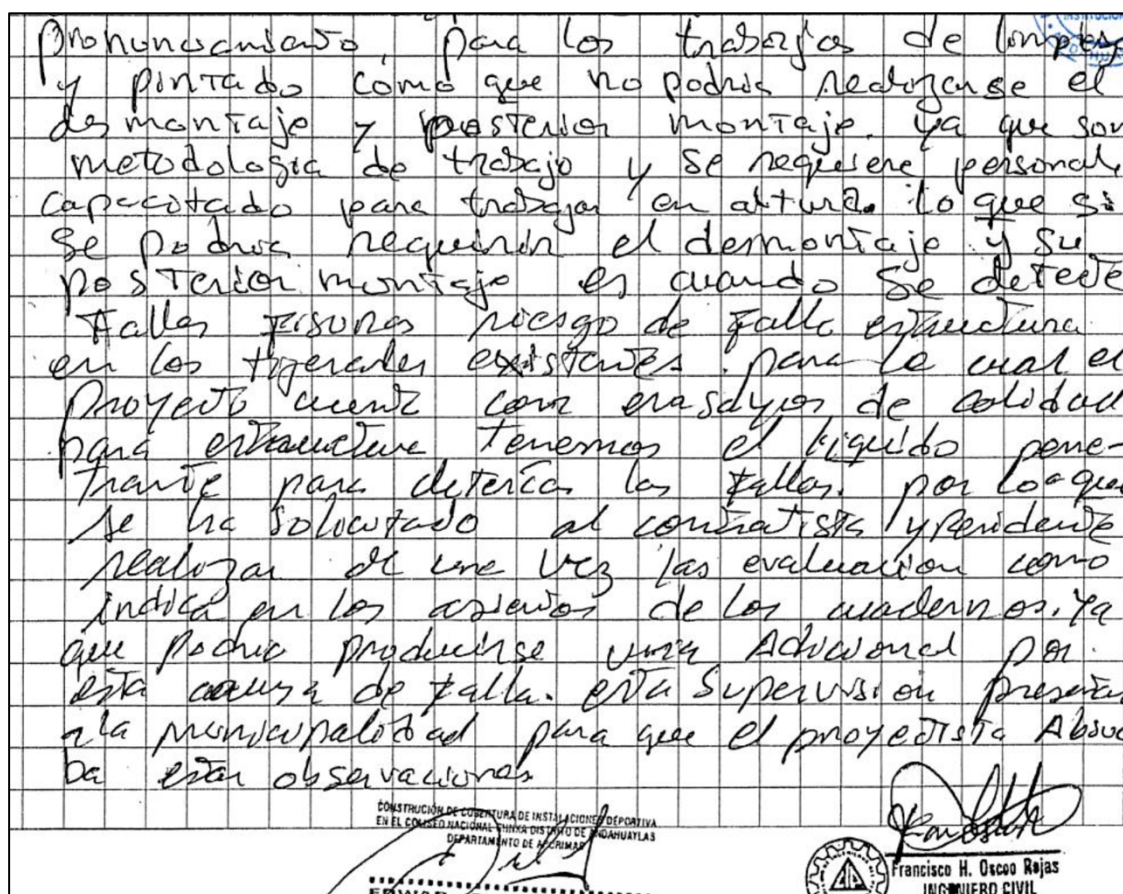 INSTITUCION
pronunciamiento para los trabajos de limpieza
y pintado cómo que no podria realizarse el
desmontaje y posterior montaje. ya que son
metodologia de trabajo y se requiere personal
capacitado para trabajar en altura. lo que si
se podria requerir el desmontaje y su
posterior montaje es cuando se detecte
fallas fisuras riesgo de falla estructura
en los tijerales existentes. para lo cual el
proyecto cuenta con ensayos de calidad
para estructura tenemos el liquido pene-
trante para detectar las fallas. por lo que
se ha solicitado al contratista y Residente
realizar de una vez las evaluacion como
indica en los asientos de los cuadernos. ya
que Podria producirse una Adicional por
esta causa de falla. esta Supervision presenta
a la municipalidad para que el proyectista Absuel
ba estas observaciones
CONSTRUCION DE COBERTURA DE INSTALACIONES DEPORTIVA
EN EL COLISEO NACIONAL CHINKA DISTRITO DE ANDAHUAYLAS
DEPARTAMENTO DE APURIMAC
Francisco H. Oscco Rojas
INGENIERO CIVIL